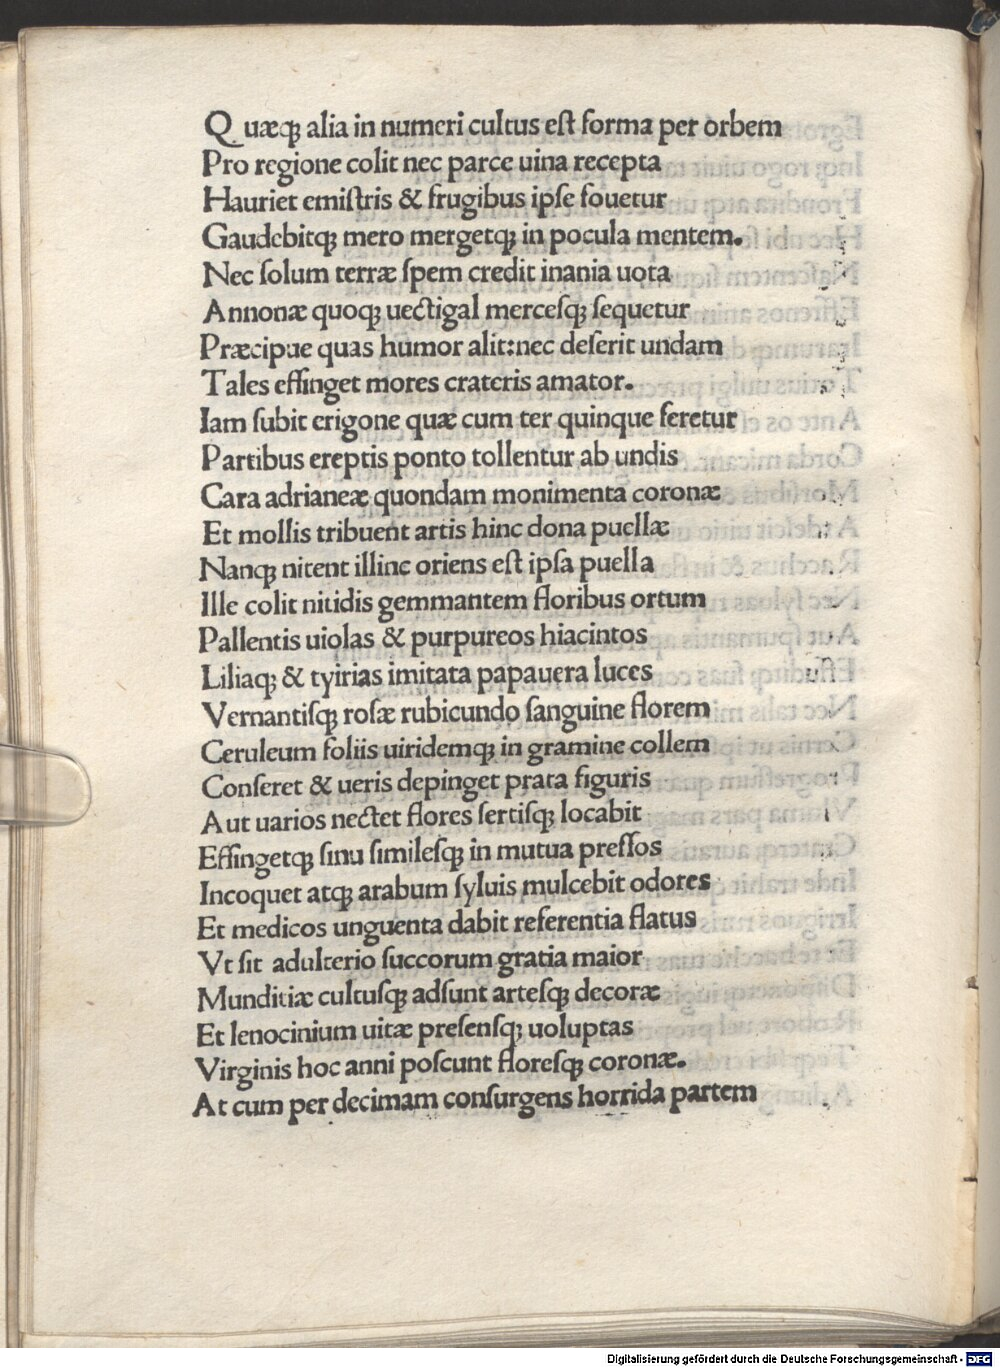 Quæqꝫ alia in numeri cultus eſt forma per orbem
Pro regione colit nec parce uina recepta
Hauriet emiſtris & frugibus ipſe fouetur
Gaudebitqꝫ mero mergetqꝫ in pocula mentem.
Nec ſolum terræ ſpem credit inania uota
Annonæ quoqꝫ uectigal merceſqꝫ ſequetur
Præcipue quas humor alit:nec deſerit undam
Tales effinget mores crateris amator.
Iam ſubit erigone quæ cum ter quinque feretur
Partibus ereptis ponto tollentur ab undis
Cara adrianeæ quondam monimenta coronæ
Et mollis tribuent artis hinc dona puellæ
Nanqꝫ nitent illinc oriens eſt ipſa puella
Ille colit nitidis gemmantem floribus ortum
Pallentis uiolas & purpureos hiacintos
Liliaqꝫ & tyirias imitata papauera luces
Vernantiſqꝫ roſæ rubicundo ſanguine florem
Ceruleum foliis uiridemqꝫ in gramine collem
Conſeret & ueris depinget prata figuris
Aut uarios nectet flores ſertiſqꝫ locabit
Effingetqꝫ ſinu ſimileſqꝫ in mutua preſſos
Incoquet atqꝫ arabum ſyluis mulcebit odores
Et medicos unguenta dabit referentia flatus
Vt ſit adulterio ſuccorum gratia maior
Munditiæ cultuſqꝫ adſunt arteſqꝫ decoræ
Et lenocinium uitæ preſenſqꝫ uoluptas
Virginis hoc anni poſcunt floreſqꝫ coronæ.
At cum per decimam conſurgens horrida partem
Digitalisierung gefördert durch die Deutsche Forschungsgemeinschaft - DFG